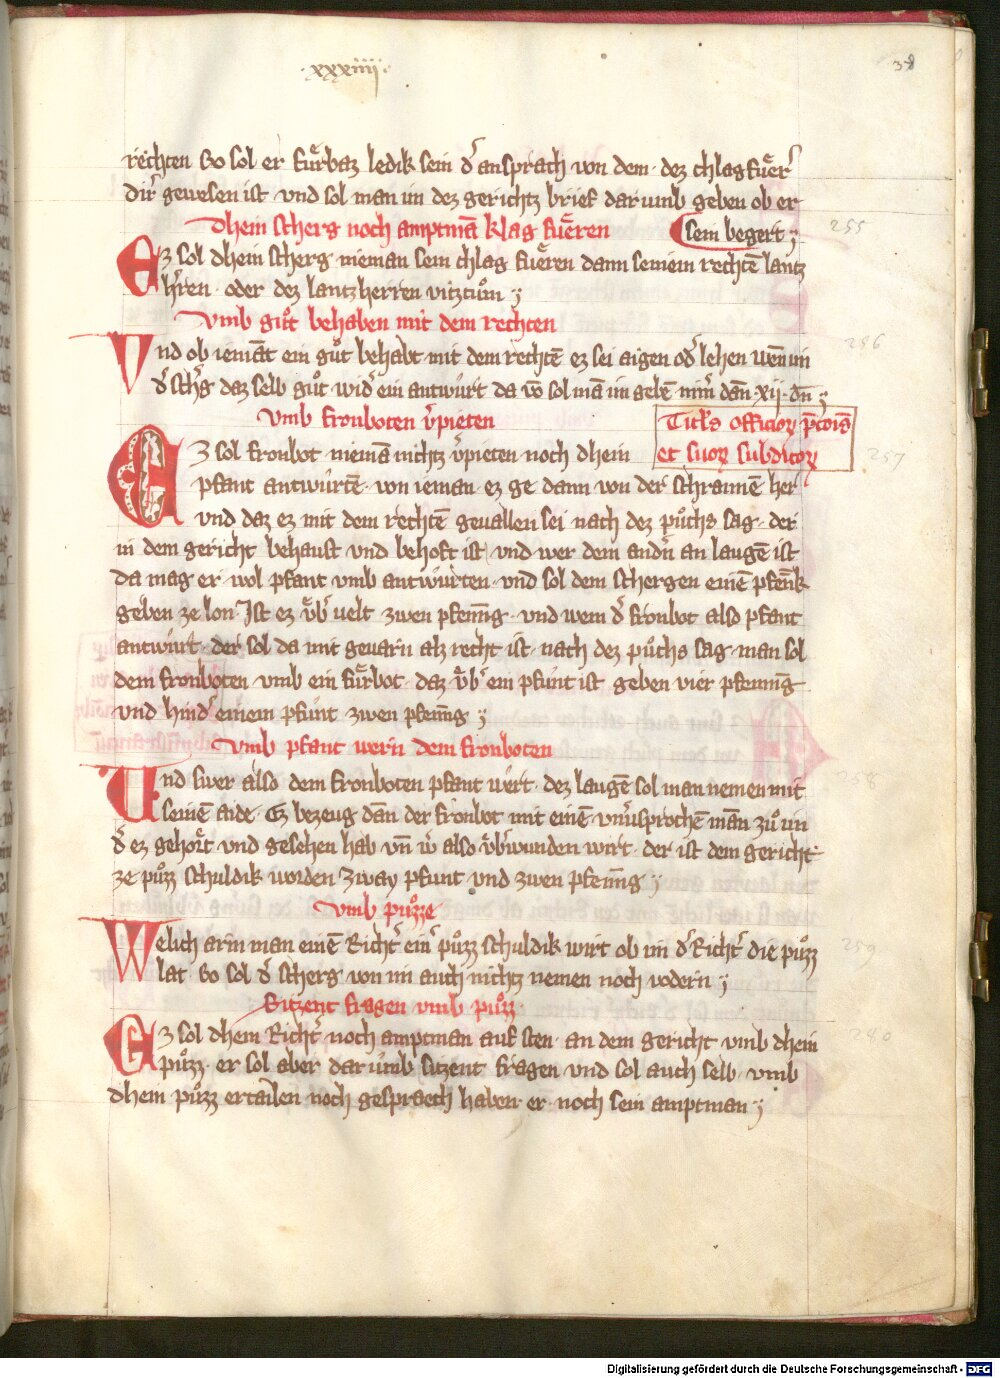 ·xxxiiij·
38
rechten So sol er fuͤrbaz ledik sein d͛ ansprach von dem· dez chlagfuͤer͛
dir͛ gewesen ist· vnd sol man im dez gerichtz brief dar vmb geben ob er
Dhein scherg noch amptmā klag fuͤeren
sein begert ;
255
Ez sol dhein scherg nieman sein chlag fuͤeren dann seinem rechtē lantz
h͛ren· oder dez lantzherren vitztuͦm ;
Vmb guͦt behaben mit dem rechten
256
Vnd ob iemāt ein guͦt behabt mit dem rechtē ez sei aigen od͛ lehen wen̄ im
d͛ sch͛g daz selb guͦt wid͛ ein antwurt da vō sol mā im gebē nim͛ dan̄ xij· dn̄ ;
Vmb fronboten v͛pieten
Titl͛s officior̄ p͛cois̄
et suor̄ subditor̄
257
Ez sol fronbot niemā nichtz v͛pieten noch dhein
pfant antwurtē· von ieman· ez ge dann von der schrannē her
vnd daz ez mit dem rechtē geuallen sei nach dez puͦchs sag· der
in dem gericht behaust vnd behoft ist· vnd wer dem andn̄ an laugē ist
da mag er· wol pfant vmb antwurten· vnd sol dem schergen einē pfen̄k
geben ze lon· Ist ez v̈b͛ uelt zwen pfenīg· vnd wem d͛ fronbot also pfant
antwurt· der sol da mit geuarn alz recht ist· nach dez puͦchs sag· man sol
dem fronboten vmb ein fuͤrbot· daz v̈b͛ ein pfunt ist geben vier pfennīg·
vnd hind͛ einem pfunt zwen pfenīg ;
Vmb pfant wern dem fronboten
258
Vnd swer also dem fronboten pfant wert· dez laugē sol man nemen mit
seinē aide· Ez bezeug dān der fronbot mit einē vnu͛sprochē mān zuͦ im
d͛ ez gehoͤrt vnd gesehen hab vn̄ w͛ also v̈b͛wunden wirt· der ist dem gericht
ze puͦzz schuldik worden zway pfunt vnd zwen pfenīg ;
Vmb puͦzze
259
Welich arm man einē Richt͛ ein͛ puͦzz schuldik wirt ob im d͛ Richt͛ die puͦzz
lat· So sol d͛ scherg von im auch nichtz nemen noch vodern ;
Sitzent fragen vmb puͦzz·
260
Ez sol dhein Richt͛ noch amptman auf sten· an dem gericht vmb dhein
puͦzz· er sol aber dar vmb sitzent fragen vnd sol auch selb· vmb
dhein puͦzz ertailen noch gespraech haben· er· noch sein amptman ;
Digitalisierung gefördert durch die Deutsche Forschungsgemeinschaft - DFG